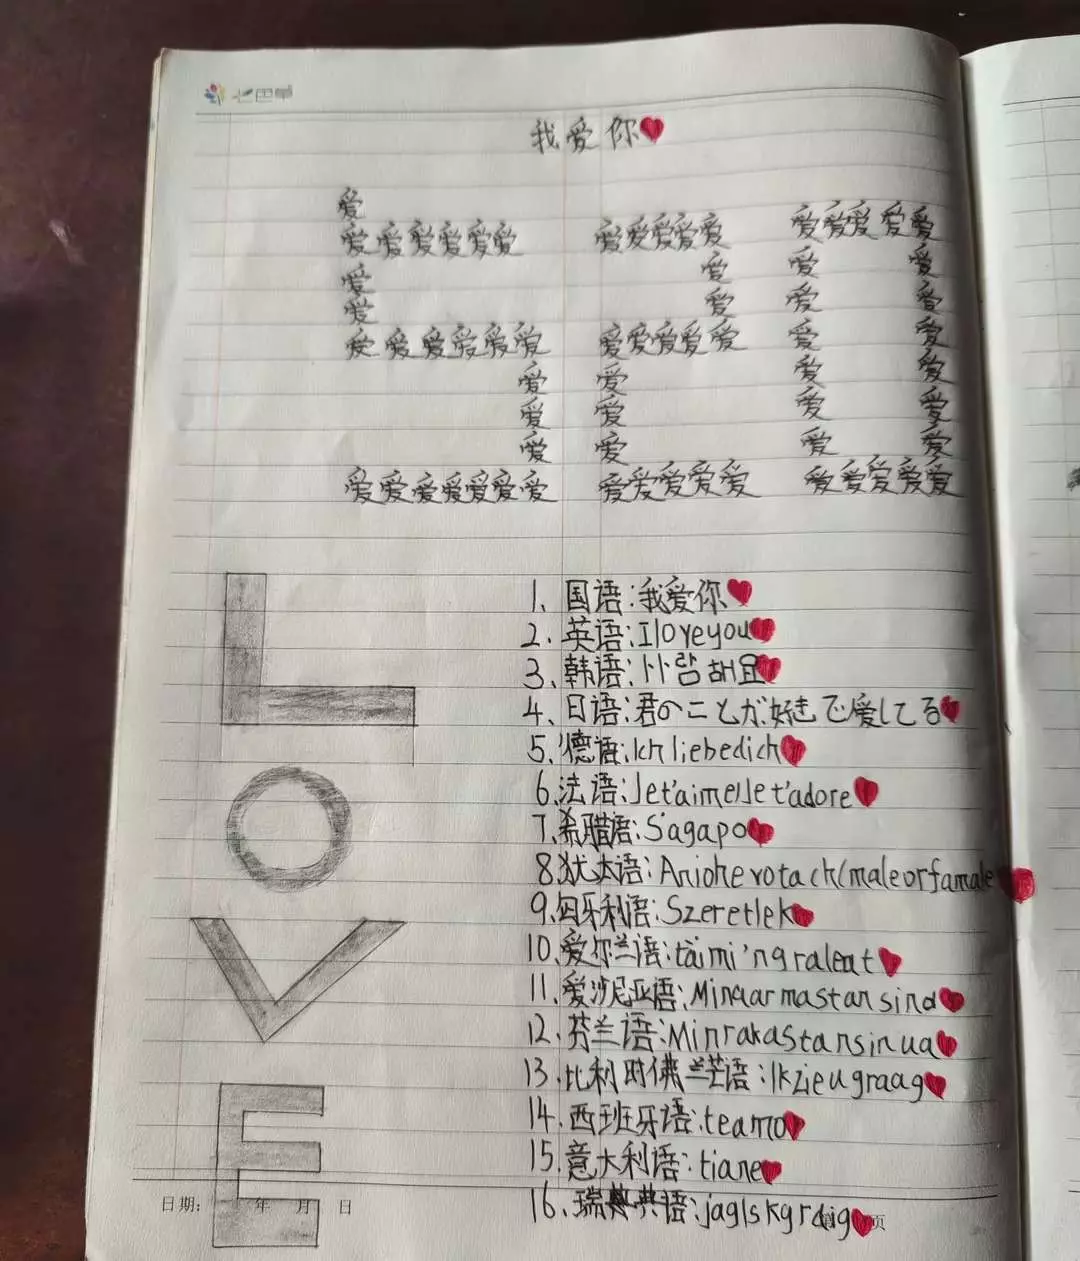 七色草
我爱你
爱
爱爱爱爱爱爱 爱爱爱爱爱 爱爱爱爱爱
爱 爱 爱 爱
爱 爱 爱 爱
爱爱爱爱爱爱 爱爱爱爱爱 爱 爱
爱 爱 爱 爱
爱 爱 爱 爱
爱 爱 爱 爱
爱爱爱爱爱爱爱 爱爱爱爱爱 爱爱爱爱爱
L
O
V
E
1、国语:我爱你
2.英语:Iloveyou
3、韩语:사랑해요
4、日语:君のことが好きで愛してる
5.德语:Ichliebedich
6.法语:Jet'aime/Jet'adore
7.希腊语:S'agapo
8.犹太语:Aniohevotach(maleorfamale
9.匈牙利语:Szeretlek
10.爱尔兰语:taimi'ngraleat
11.爱沙尼亚语:Minaarmastansind
12.芬兰语:Minrakastansinua
13.比利时佛兰芒语:Ikzieugraag
14.西班牙语:teamo
15.意大利语:tiane
16.瑞典语:jaglskgrdig
日期: 年 月 日
页